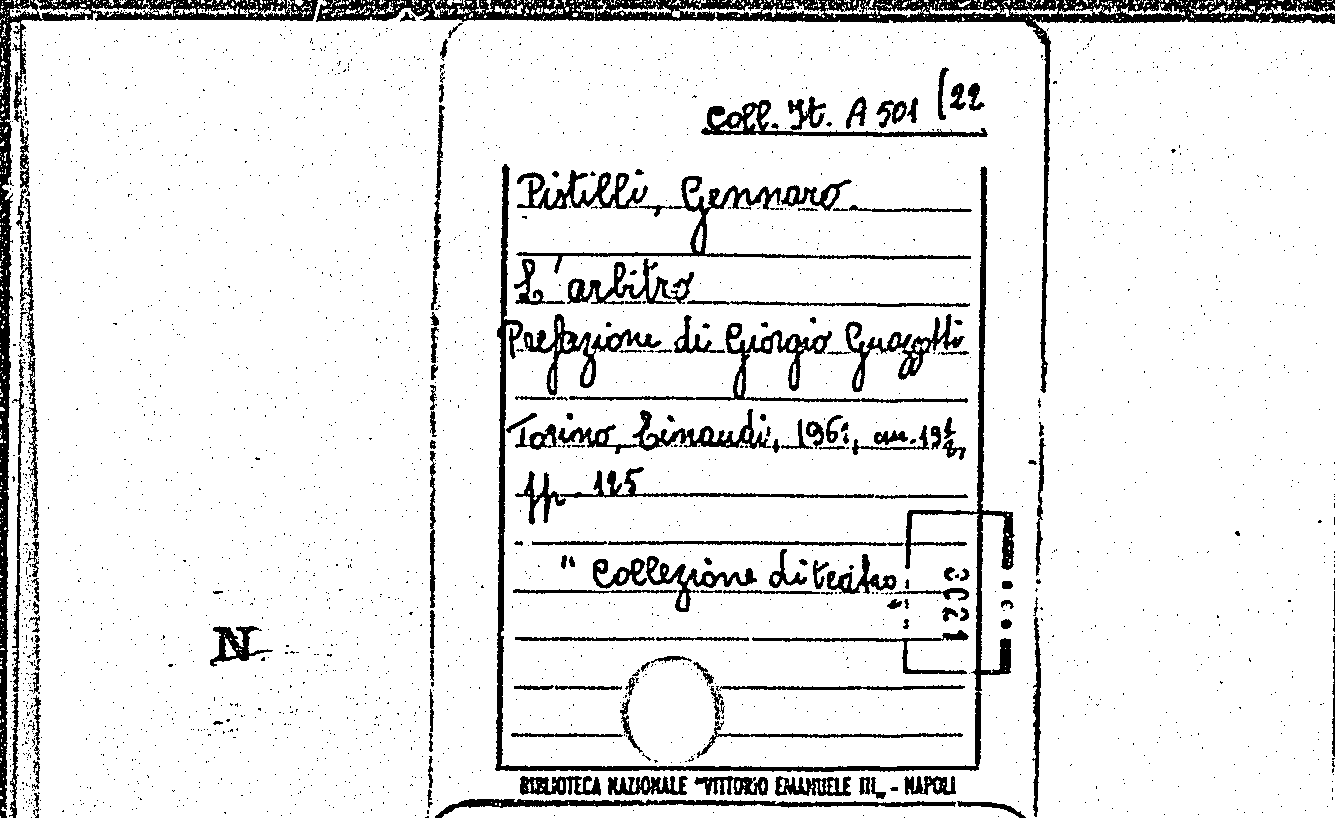 Coll. It. A 501 (22
Pistilli, Gennaro.
L'arbitro
Prefazione di Giorgio Guazzotti
Torino, Einaudi, 1961, cm. 19½,
pp. 125
"Collezione di teatro„
3021
N
BIBLIOTECA NAZIONALE "VITTORIO EMANUELE III„ - NAPOLI